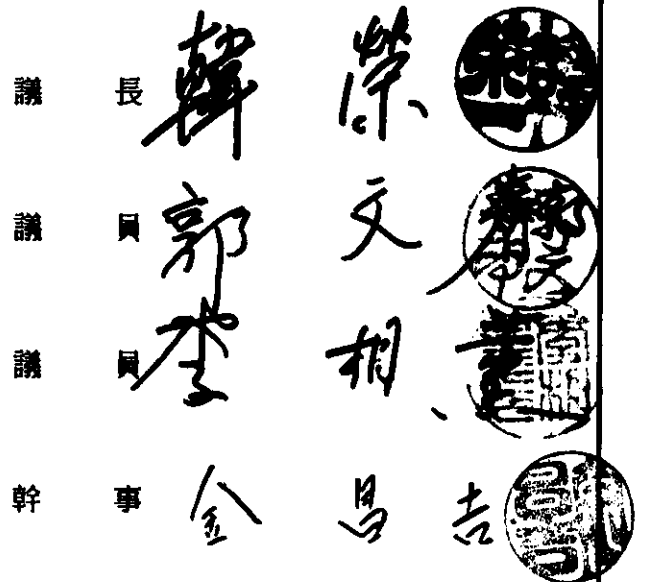 議 長 韓 榮
議 員 郭 文
議 員 李 相
幹 事 金 昌 吉